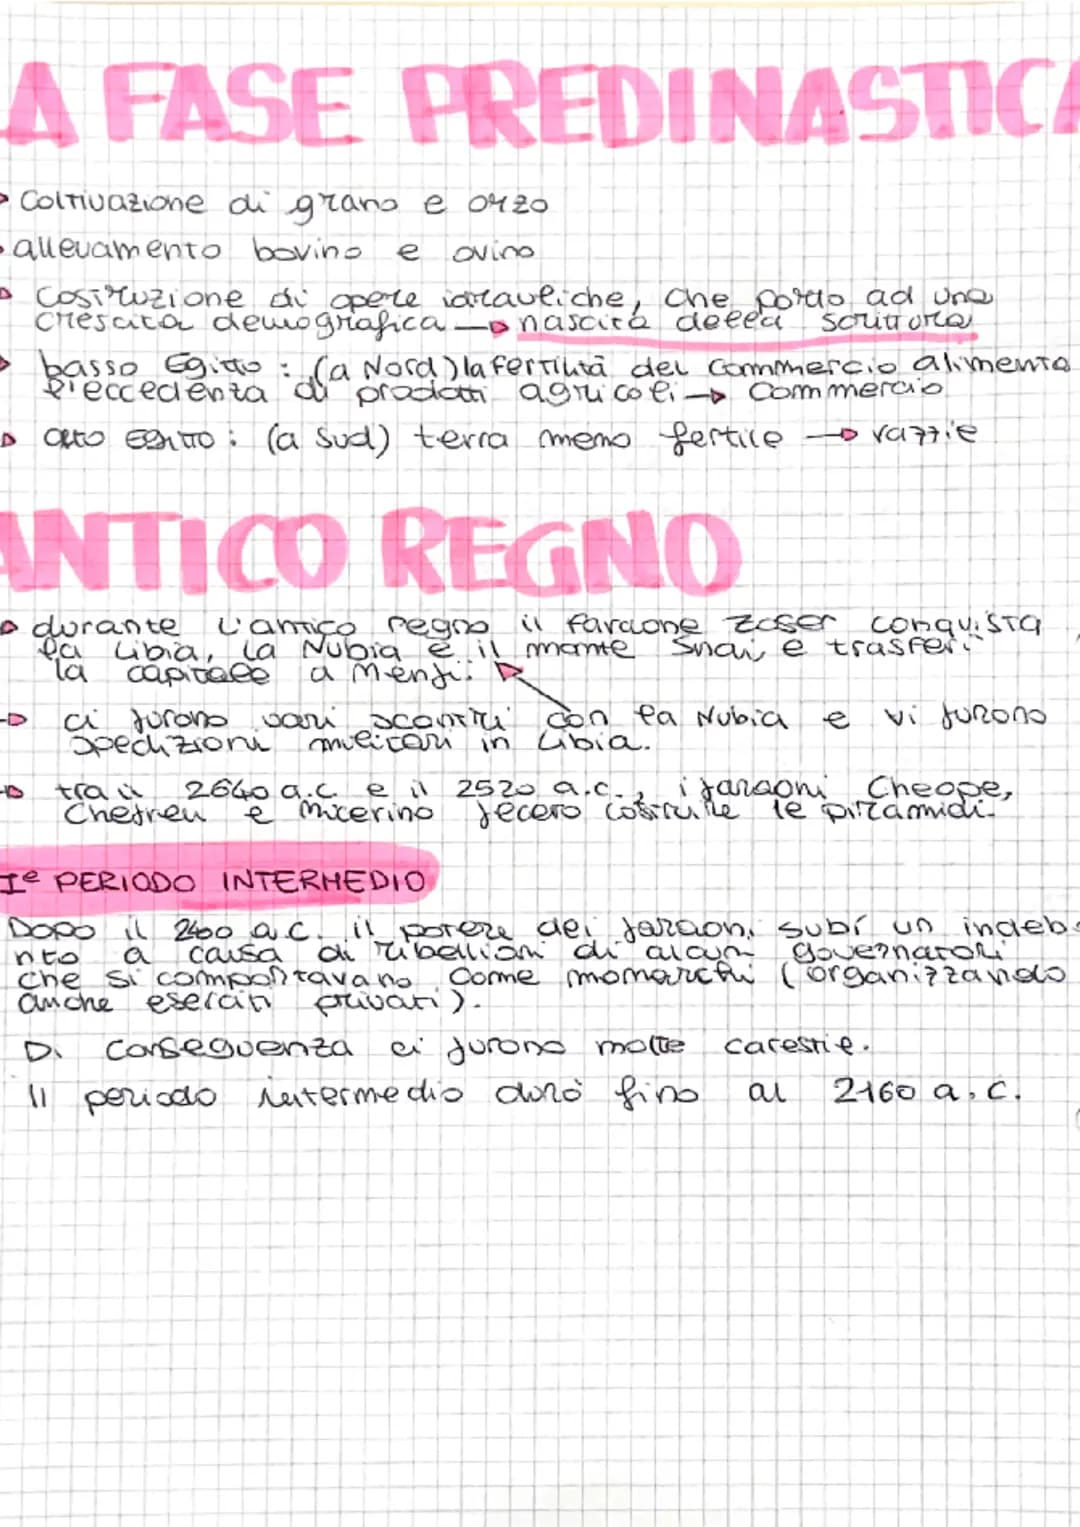 A FASE PREDINASTICA
Coltivazione di grano e orzo
allevamento bovino e ovino
Costruzione di opere idrauliche, che portò ad una
crescita demografica → nascita della scrittura
basso Egitto : (a Nord) la fertilità del commercio alimenta
l'eccedenza di prodotti agricoli → commercio
alto Egitto : (a Sud) terra meno fertile → razzie
ANTICO REGNO
durante l'antico regno il faraone Zoser conquista
la Libia, la Nubia e il monte Sinai, e trasferì
la capitale a Menfi.
ci furono vari scontri con la Nubia e vi furono
spedizioni militari in Libia.
tra il 2640 a.c e il 2520 a.c., i faraoni Cheope,
Chefren e Micerino fecero costruire le piramidi.
I° PERIODO INTERMEDIO
Dopo il 2400 a.C. il potere dei faraoni subí un indeb
nto a causa di ribellioni di alcuni governatori
che si comportavano come monarchi (organizzando
anche eserciti privati).
Di conseguenza ci furono molte carestie.
Il periodo intermedio durò fino al 2160 a.C.